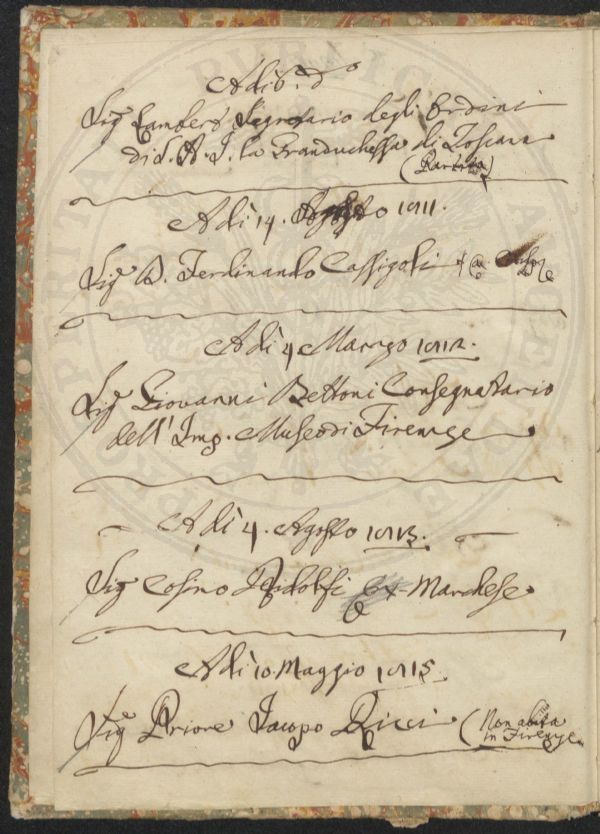 Adi 6. d.o
Sig.e Lambert Segretario degli Ordini
di S. A. I. la Granduchessa di Toscana
(Partito)
A dì 14. Agosto 1811.
Sig.e D. Ferdinando Cassigoli
A dì 4 Marzo 1812.
Sig.e Giovanni Bettoni Consegnatario
dell' Imp. Museo di Firenze
A dì 4. Agosto 1813.
Sig.e Cosimo Ridolfi Ex-Marchese
A dì 10. Maggio 1815.
Sig.e Priore Iacopo Ricci (Non abita
in Firenze